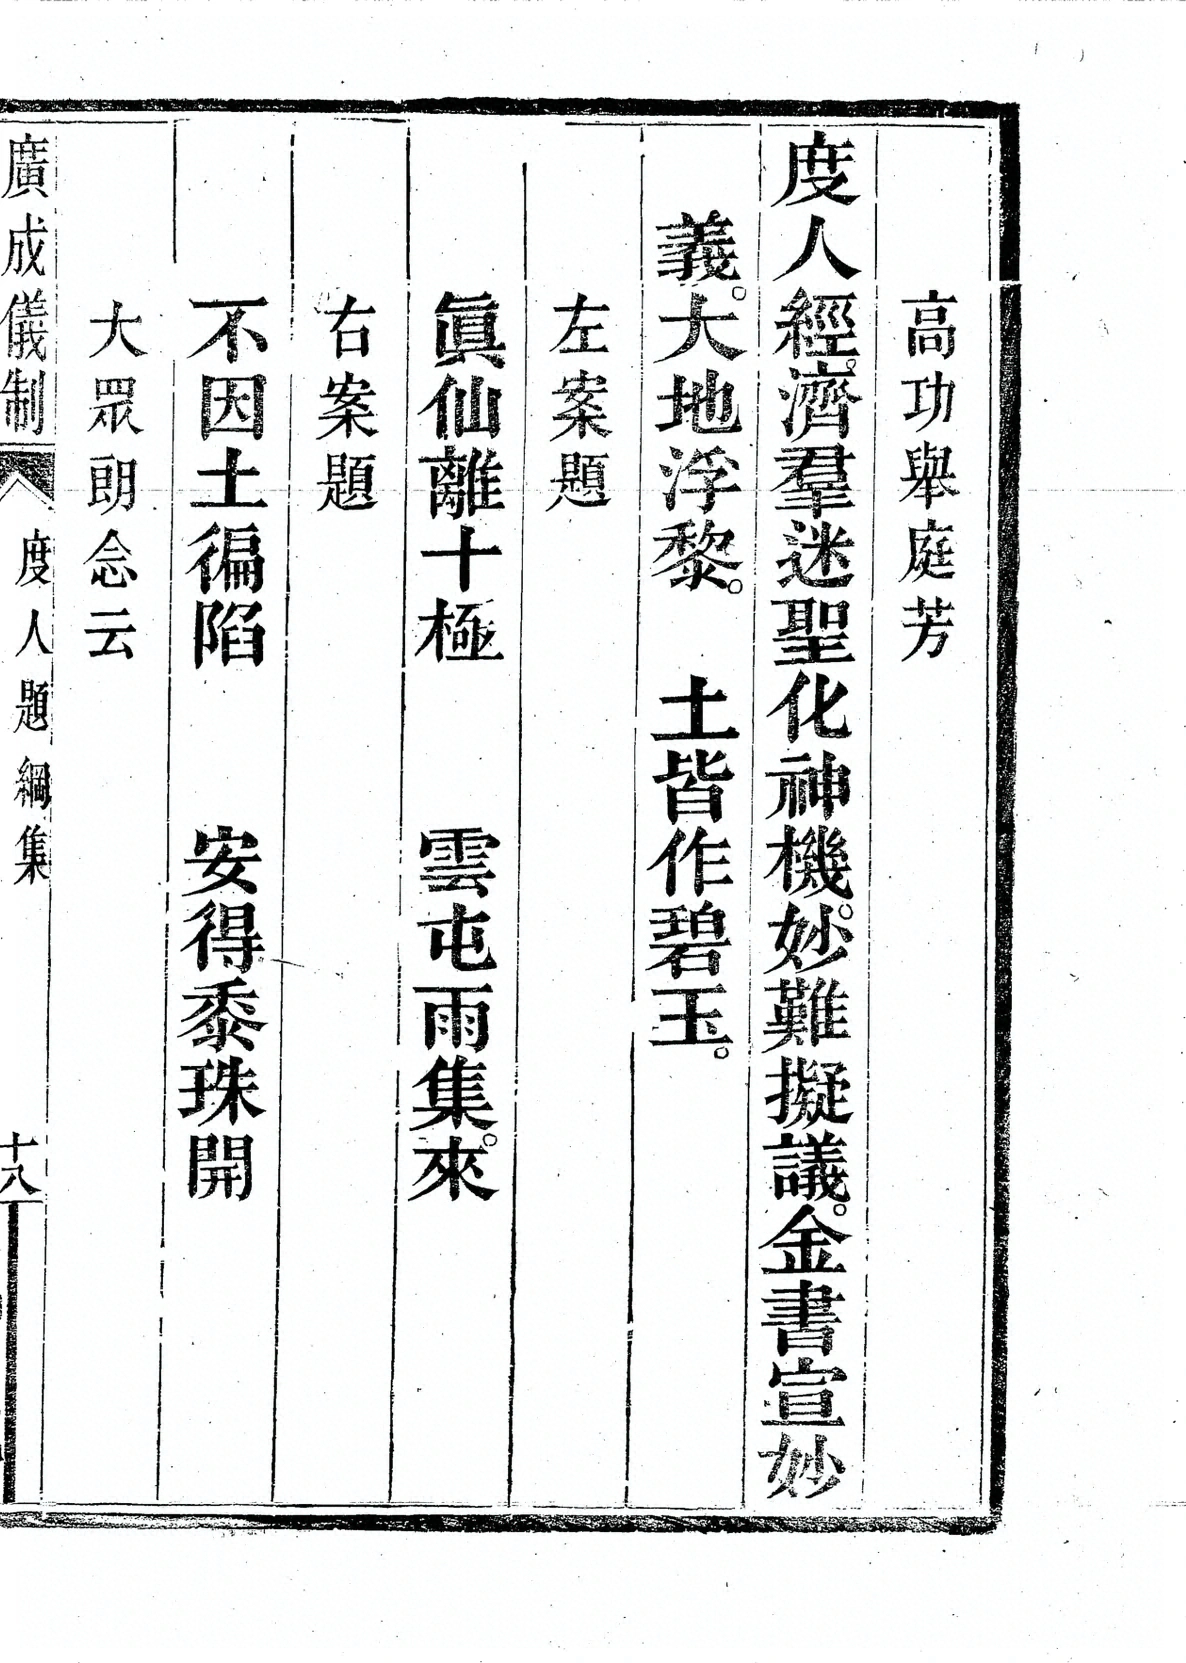 高功舉庭芳
度人經。濟羣迷聖化神機。妙難擬議。金書宣妙
義。大地浮黎。　土皆作碧玉。
左案題
眞仙離十極　　雲屯雨集。來
右案題
不因土徧陷　　安得黍珠開
大眾朗念云
廣成儀制　度人題綱集　十八